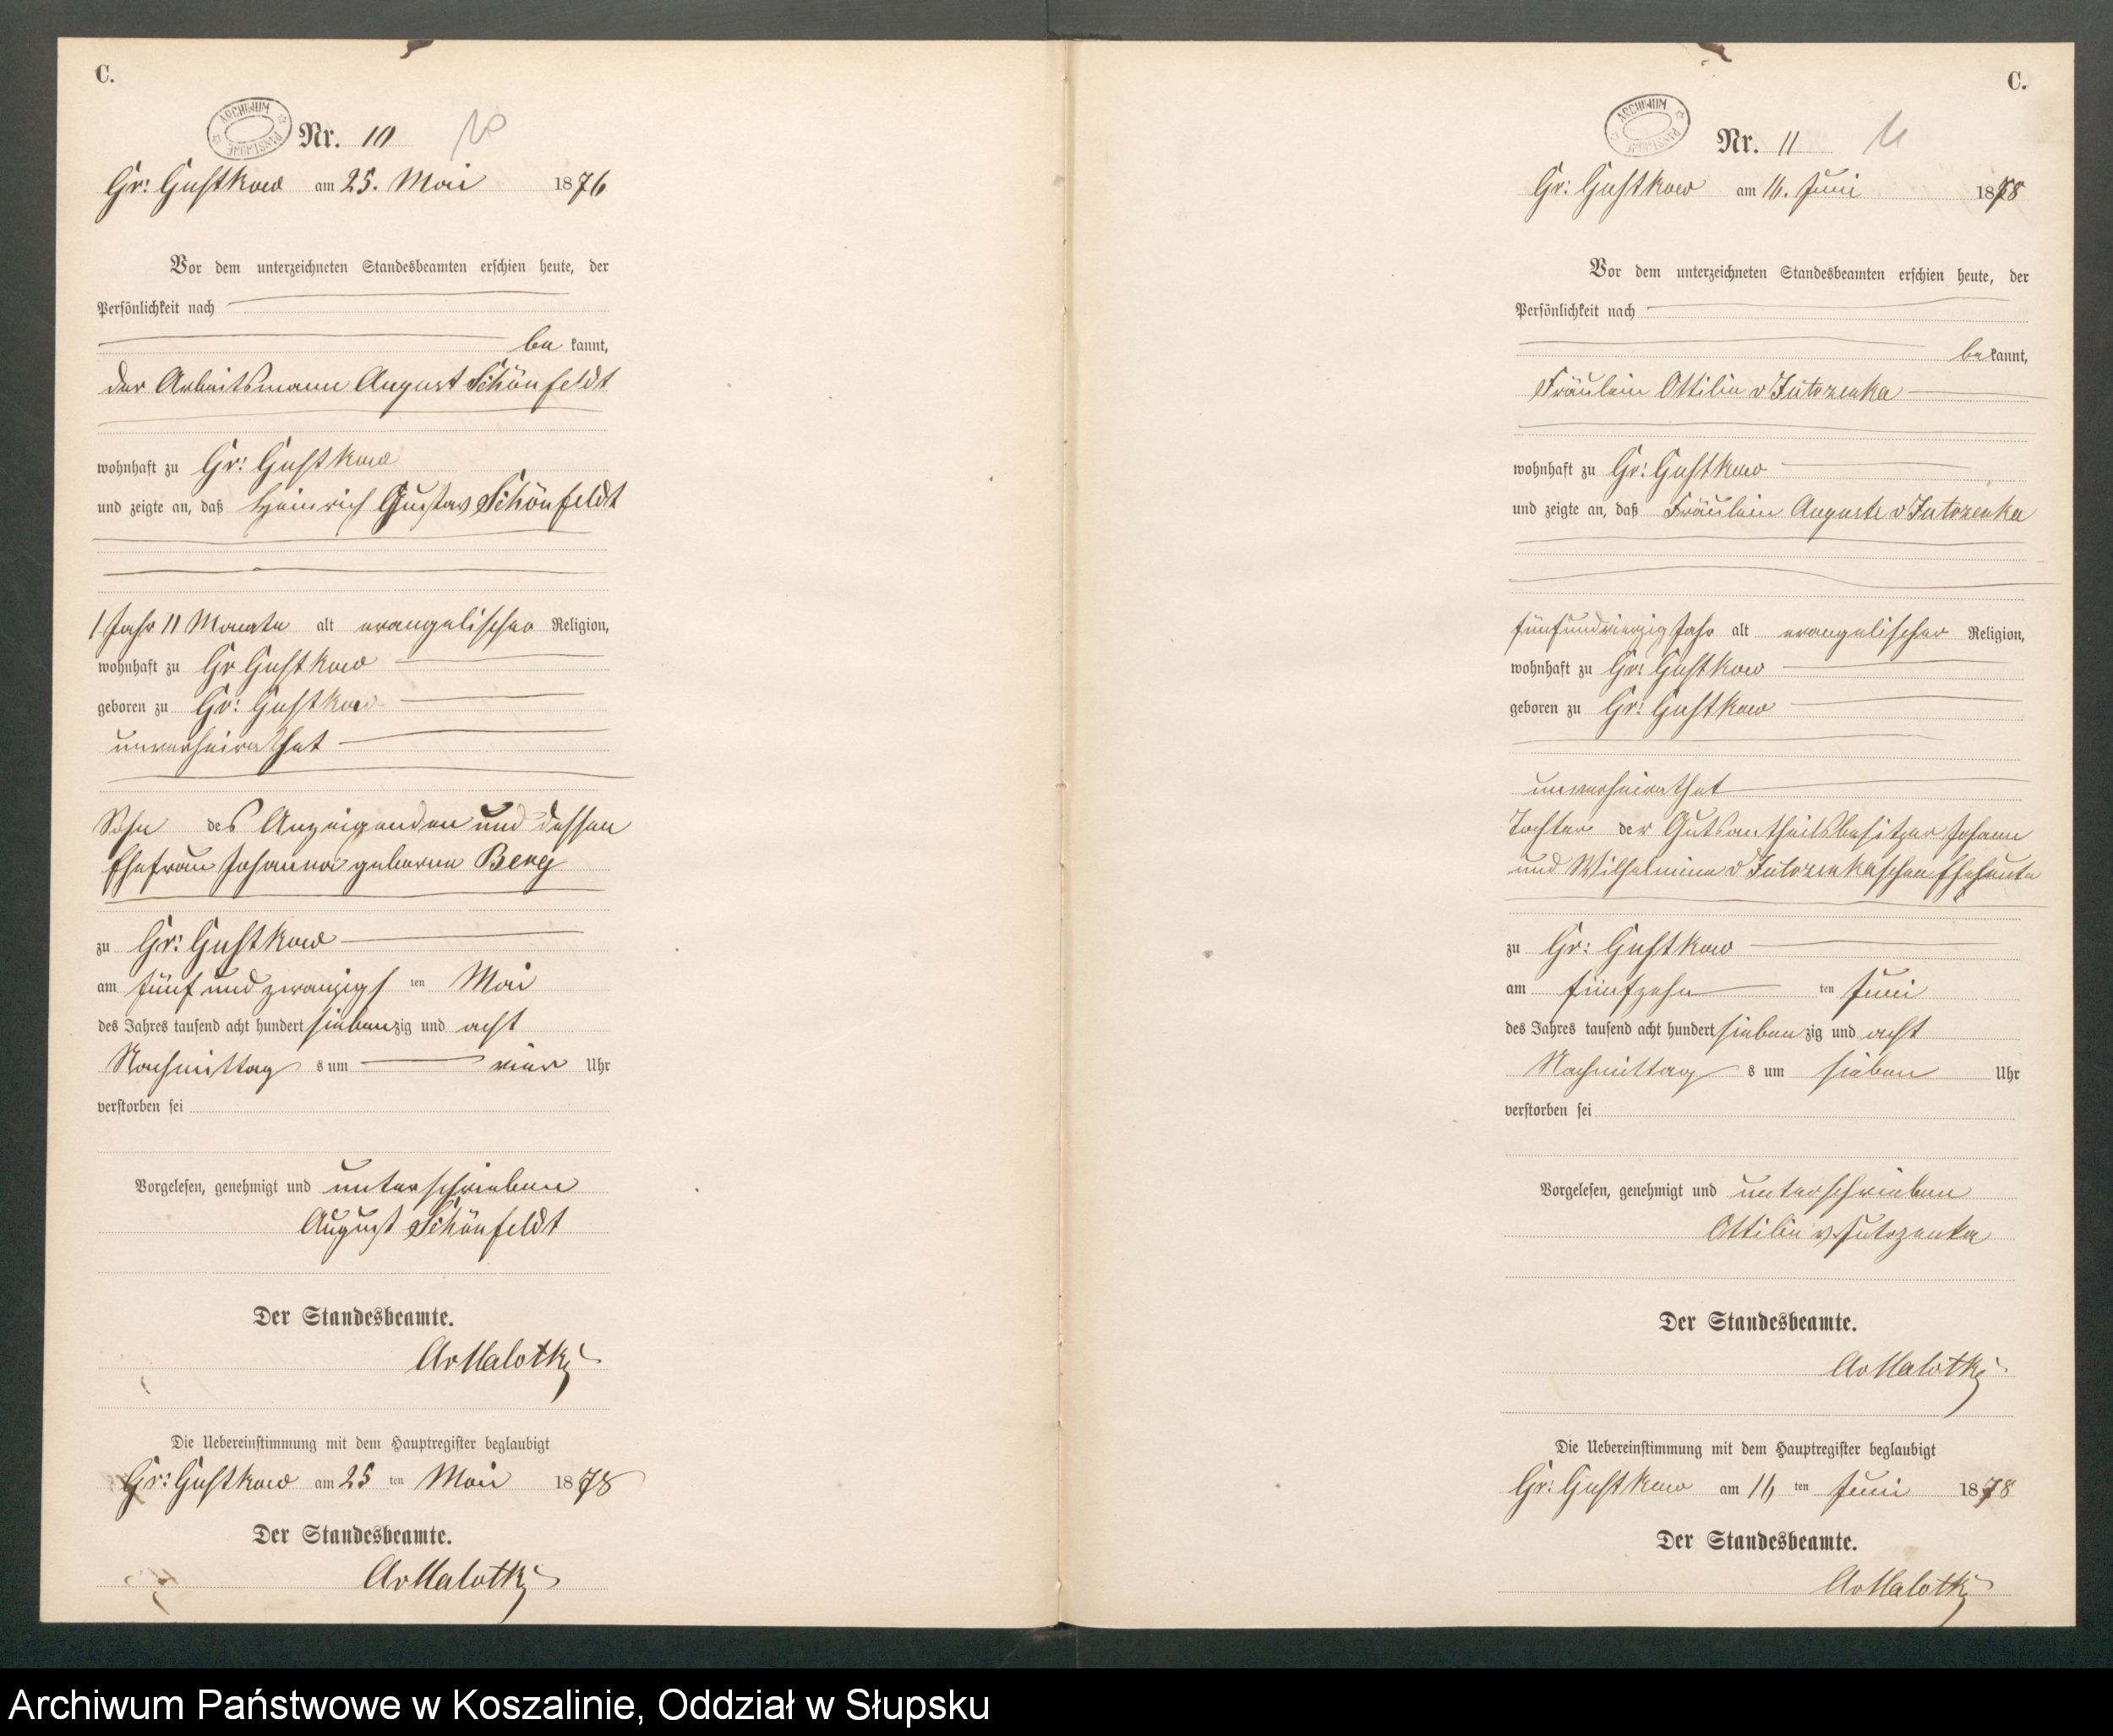 C.
ARCHIWUM PAŃSTWOWE
Nr. 10 10
Gr: Gustkow am 25. Mai 1876
Vor dem unterzeichneten Standesbeamten erschien heute, der
Persönlichkeit nach
be kannt,
der Arbeitsmann August Schönfeldt
wohnhaft zu Gr: Gustkow
und zeigte an, daß Heinrich Gustav Schönfeldt
1 Jahr 11 Monate alt evangelischer Religion,
wohnhaft zu Gr Gustkow
geboren zu Gr: Gustkow
unverheirathet
Sohn des Anzeigenden und dessen
Ehefrau Johanna geborne Berg
zu Gr: Gustkow
am fünfundzwanzigsten Mai
des Jahres tausend acht hundert siebenzig und acht
Nachmittag s um vier Uhr
verstorben sei
Vorgelesen, genehmigt und unterschrieben
August Schönfeldt
Der Standesbeamte.
AvMalotki
Die Uebereinstimmung mit dem Hauptregister beglaubigt
Gr: Gustkow am 25 ten Mai 1878
Der Standesbeamte.
AvMalotki
C.
ARCHIWUM PAŃSTWOWE
Nr. 11 11
Gr: Gustkow am 16. Juni 1878
Vor dem unterzeichneten Standesbeamten erschien heute, der
Persönlichkeit nach
be kannt,
Fräulein Ottilie v Jutrzenka
wohnhaft zu Gr: Gustkow
und zeigte an, daß Fräulein Auguste v Jutrzenka
fünfundvierzig Jahr alt evangelischer Religion,
wohnhaft zu Gr: Gustkow
geboren zu Gr: Gustkow
unverheirathet
Tochter der Gutsantheilsbesitzer Johann
und Wilhelmine v Jutrzenkaschen Eheleute
zu Gr: Gustkow
am fünfzehn ten Juni
des Jahres tausend acht hundert siebenzig und acht
Nachmittag s um sieben Uhr
verstorben sei
Vorgelesen, genehmigt und unterschrieben
Ottilie v. Jutrzenka
Der Standesbeamte.
AvMalotki
Die Uebereinstimmung mit dem Hauptregister beglaubigt
Gr: Gustkow am 16 ten Juni 1878
Der Standesbeamte.
AvMalotki
Archiwum Państwowe w Koszalinie, Oddział w Słupsku